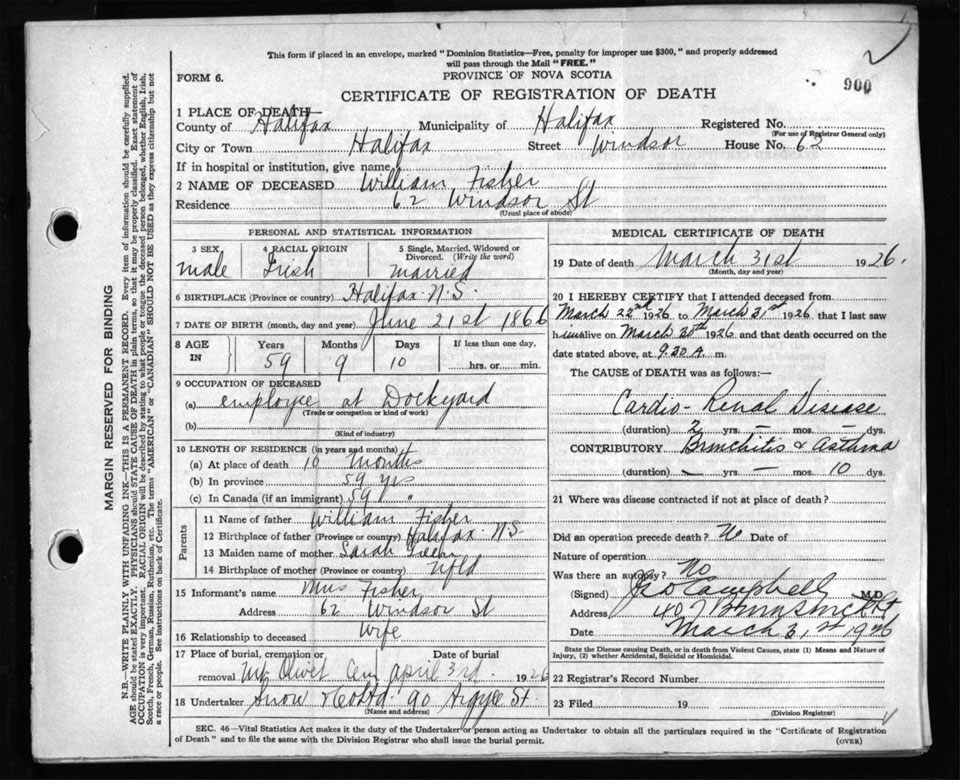 This form if placed in an envelope, marked "Dominion Statistics—Free, penalty for improper use $300," and properly addressed
will pass through the Mail "FREE."
FORM 6.
PROVINCE OF NOVA SCOTIA
900
CERTIFICATE OF REGISTRATION OF DEATH
1 PLACE OF DEATH—
County of Halifax Municipality of Halifax Registered No.
(For use of Registrar General only)
City or Town Halifax Street Windsor House No. 62
If in hospital or institution, give name
2 NAME OF DECEASED William Fisher
Residence 62 Windsor St
(Usual place of abode)
PERSONAL AND STATISTICAL INFORMATION
3 SEX 4 RACIAL ORIGIN 5 Single, Married, Widowed or
Divorced. (Write the word)
male Irish married
6 BIRTHPLACE (Province or country) Halifax N.S.
7 DATE OF BIRTH (month, day and year) June 21st 1866
8 AGE IN Years Months Days If less than one day,
59 9 10 hrs. or min.
9 OCCUPATION OF DECEASED
(a) employee at Dockyard
(Trade or occupation or kind of work)
(b)
(Kind of industry)
10 LENGTH OF RESIDENCE (in years and months)
(a) At place of death 10 months
(b) In province 59 yrs
(c) In Canada (if an immigrant) 59 "
Parents
11 Name of father William Fisher
12 Birthplace of father (Province or country) Halifax N.S.
13 Maiden name of mother Sarah Green
14 Birthplace of mother (Province or country) Nfld
15 Informant's name Mrs Fisher
Address 62 Windsor St
16 Relationship to deceased Wife
17 Place of burial, cremation or Date of burial
removal Mt Olivet Cem april 3rd 1926
18 Undertaker Snow & Co Ltd. 90 Argyle St.
(Name and address)
MEDICAL CERTIFICATE OF DEATH
19 Date of death March 31st 1926.
(Month, day and year)
20 I HEREBY CERTIFY that I attended deceased from
March 22nd 1926 to March 31st 1926, that I last saw
him alive on March 30th 1926 and that death occurred on the
date stated above, at 9.30 A. m.
The CAUSE of DEATH was as follows:—
Cardio-Renal Disease
(duration) 2 yrs. — mos. — dys.
CONTRIBUTORY Bronchitis & Asthma
(duration) — yrs. — mos. 10 dys.
21 Where was disease contracted if not at place of death?
Did an operation precede death? No Date of
Nature of operation
Was there an autopsy? No
(Signed) Campbell M.D.
Address 407 Brunswick St
Date March 31st 1926
State the Disease causing Death, or in death from Violent Causes, state (1) Means and Nature of
Injury, (2) whether Accidental, Suicidal or Homicidal.
22 Registrar's Record Number
23 Filed 19
(Division Registrar)
SEC. 46—Vital Statistics Act makes it the duty of the Undertaker or person acting as Undertaker to obtain all the particulars required in the "Certificate of Registration
of Death" and to file the same with the Division Registrar who shall issue the burial permit.
(OVER)
MARGIN RESERVED FOR BINDING
N.B.—WRITE PLAINLY WITH UNFADING INK—THIS IS A PERMANENT RECORD. Every item of information should be carefully supplied.
AGE should be stated EXACTLY. PHYSICIANS should STATE CAUSE OF DEATH in plain terms, so that it may be properly classified. Exact statement of
OCCUPATION is very important. RACIAL ORIGIN will be described by stating to what people or tongue the deceased person belonged, whether English, Irish,
Scotch, French, German, Russian, Ruthenian, etc. The terms "AMERICAN" or "CANADIAN" SHOULD NOT BE USED as they express citizenship but not
a race or people. See instructions on back of Certificate.